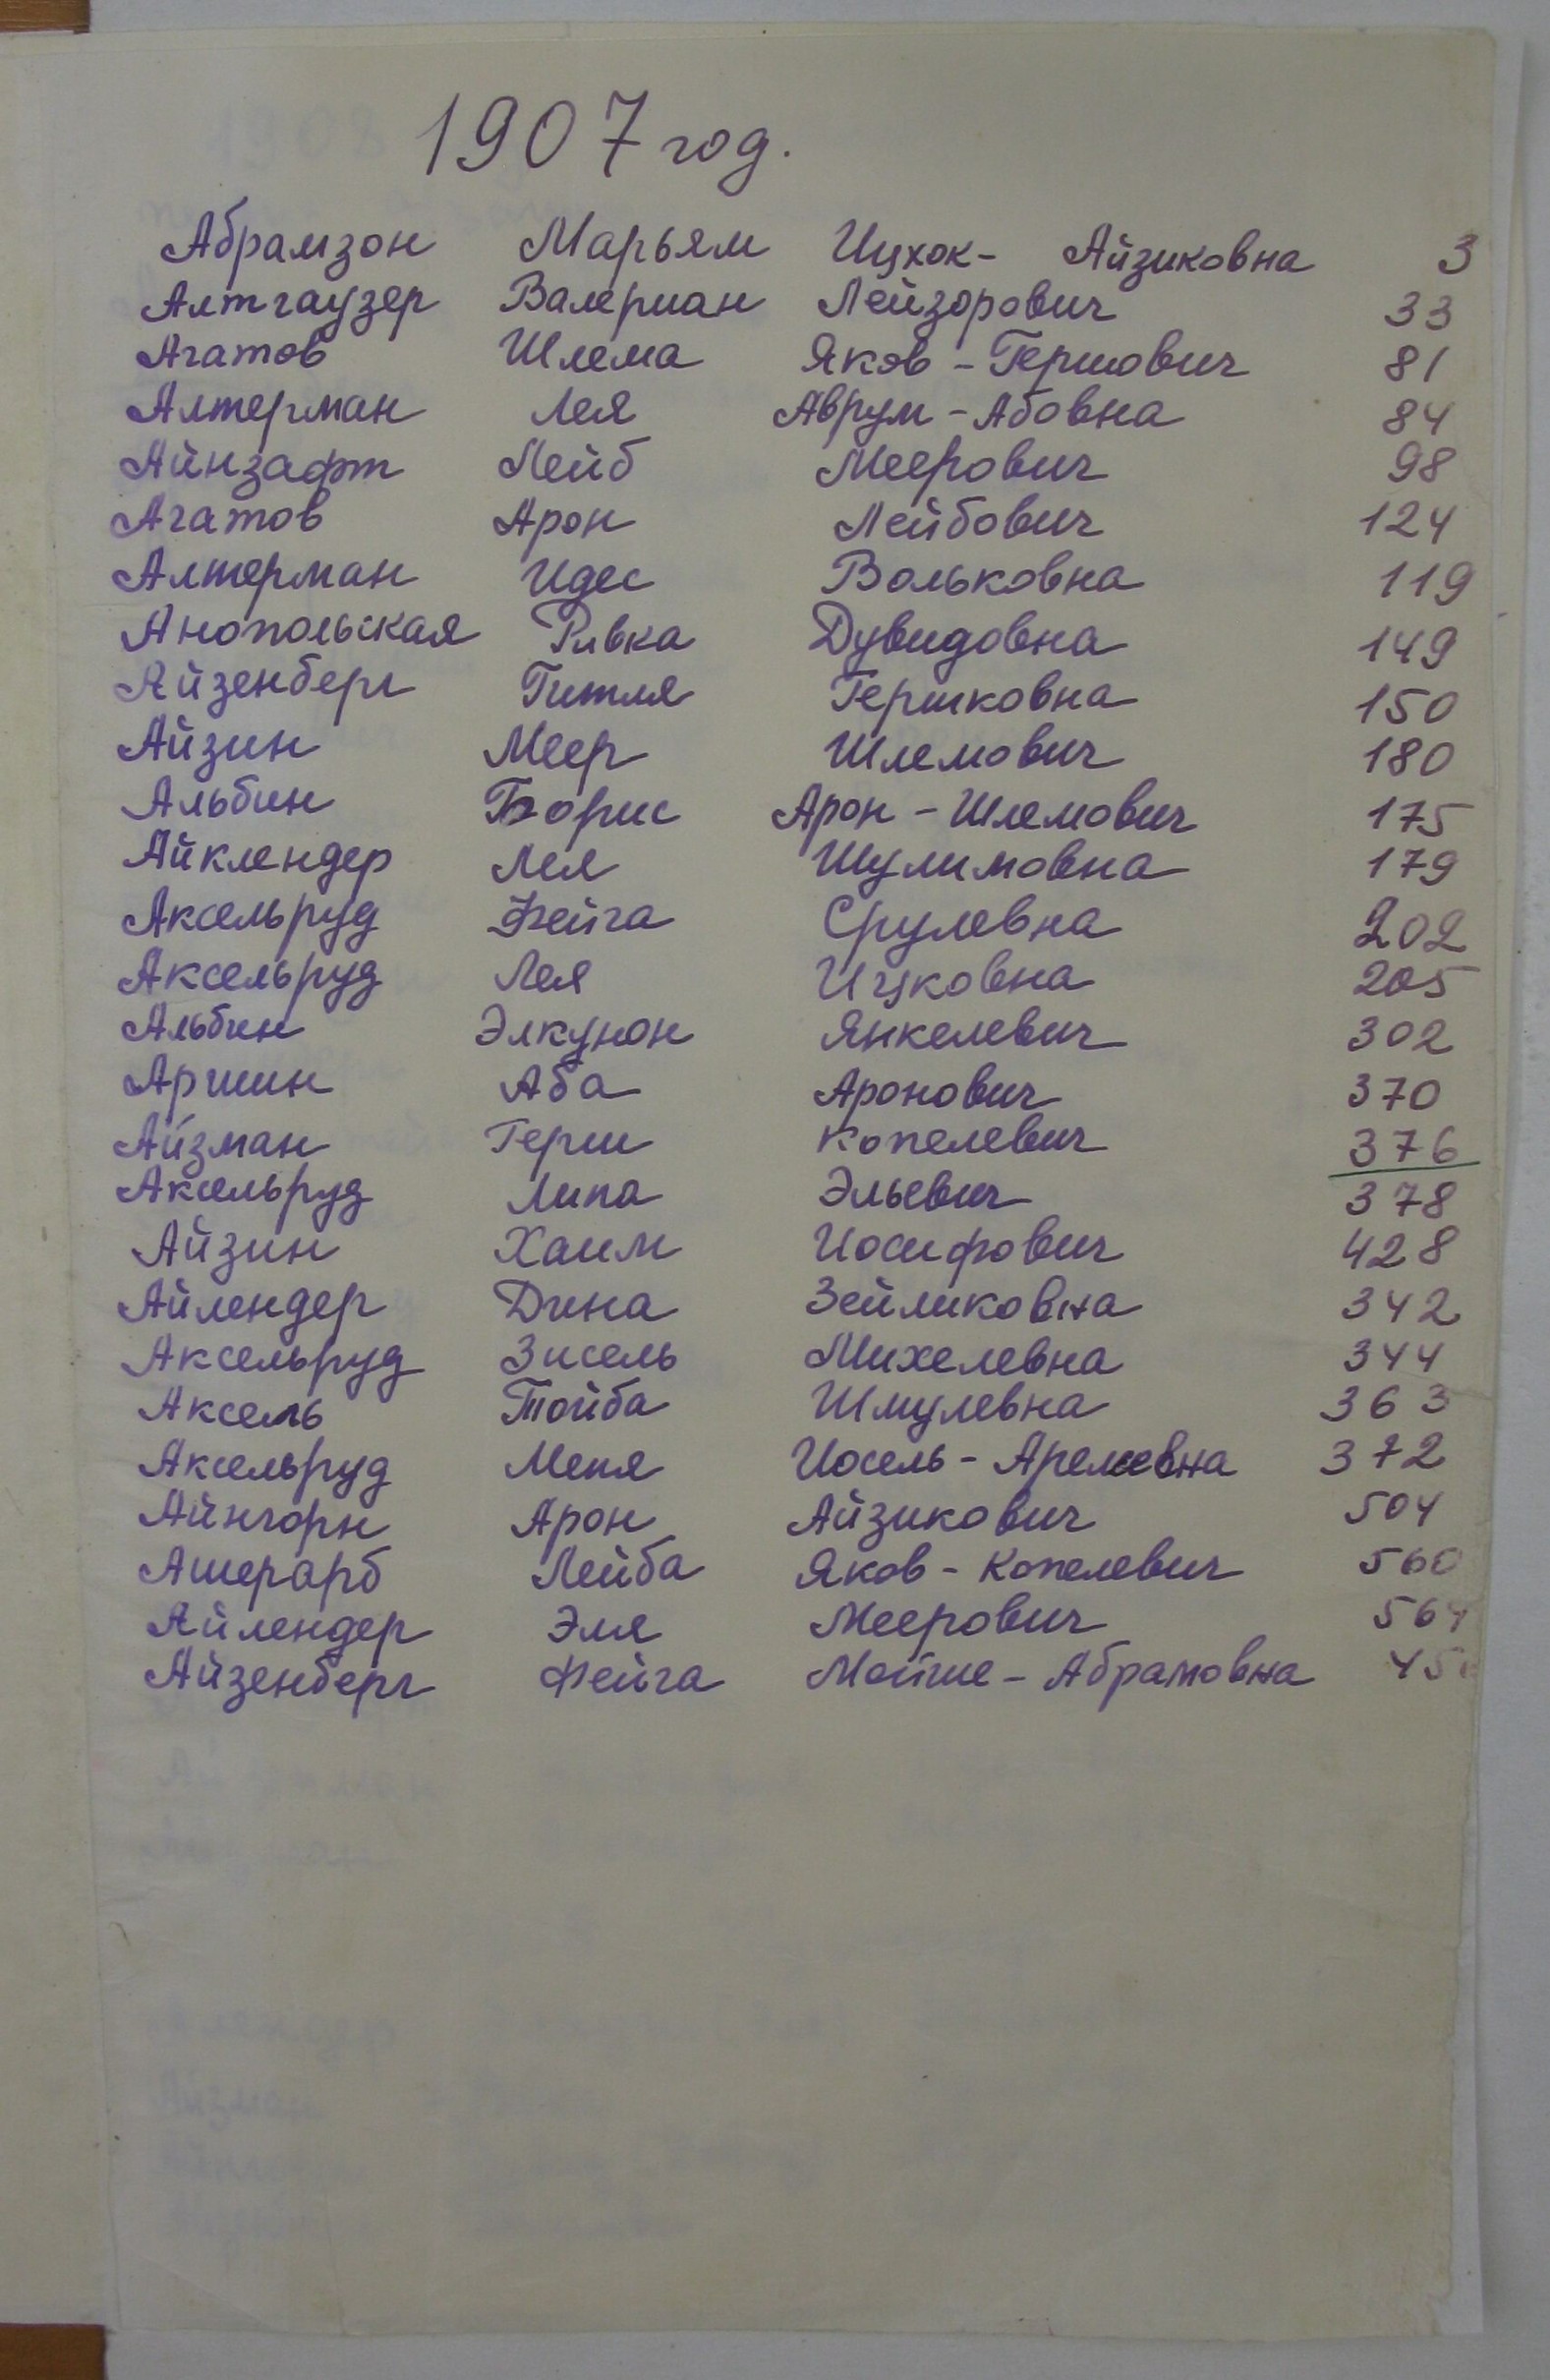 1907 год.
Абрамзон Марьям Ицхок- Айзиковна 3
Алтгаузер Валериан Лейзорович 33
Агатов Шлема Яков-Гершович 81
Алтерман Лея Аврум-Абовна 84
Айнзафт Лейб Меерович 98
Агатов Арон Лейбович 124
Алтерман Идес Вольковна 119
Анопольская Ривка Дувидовна 149
Айзенберг Гитля Гершковна 150
Айзин Меер Шлемович 180
Альбин Борис Арон-Шлемович 175
Айклендер Лея Шулимовна 179
Аксельруд Фейга Срулевна 202
Аксельруд Лея Ицковна 205
Альбин Элкунон Янкелевич 302
Аршин Аба Аронович 370
Айзман Герш Копелевич 376
Аксельруд Липа Эльевич 378
Айзин Хаим Иосифович 428
Айлендер Дина Зейликовна 342
Аксельруд Зисель Михелевна 344
Аксель Тойба Шмулевна 363
Аксельруд Меня Иосель- 372
Айнгорн Арон Айзикович 504
Ашерарб Лейба Яков-Копелевич 560
Айлендер Эля Меерович
Айзенберг Фейга Мойше-Абрамовна